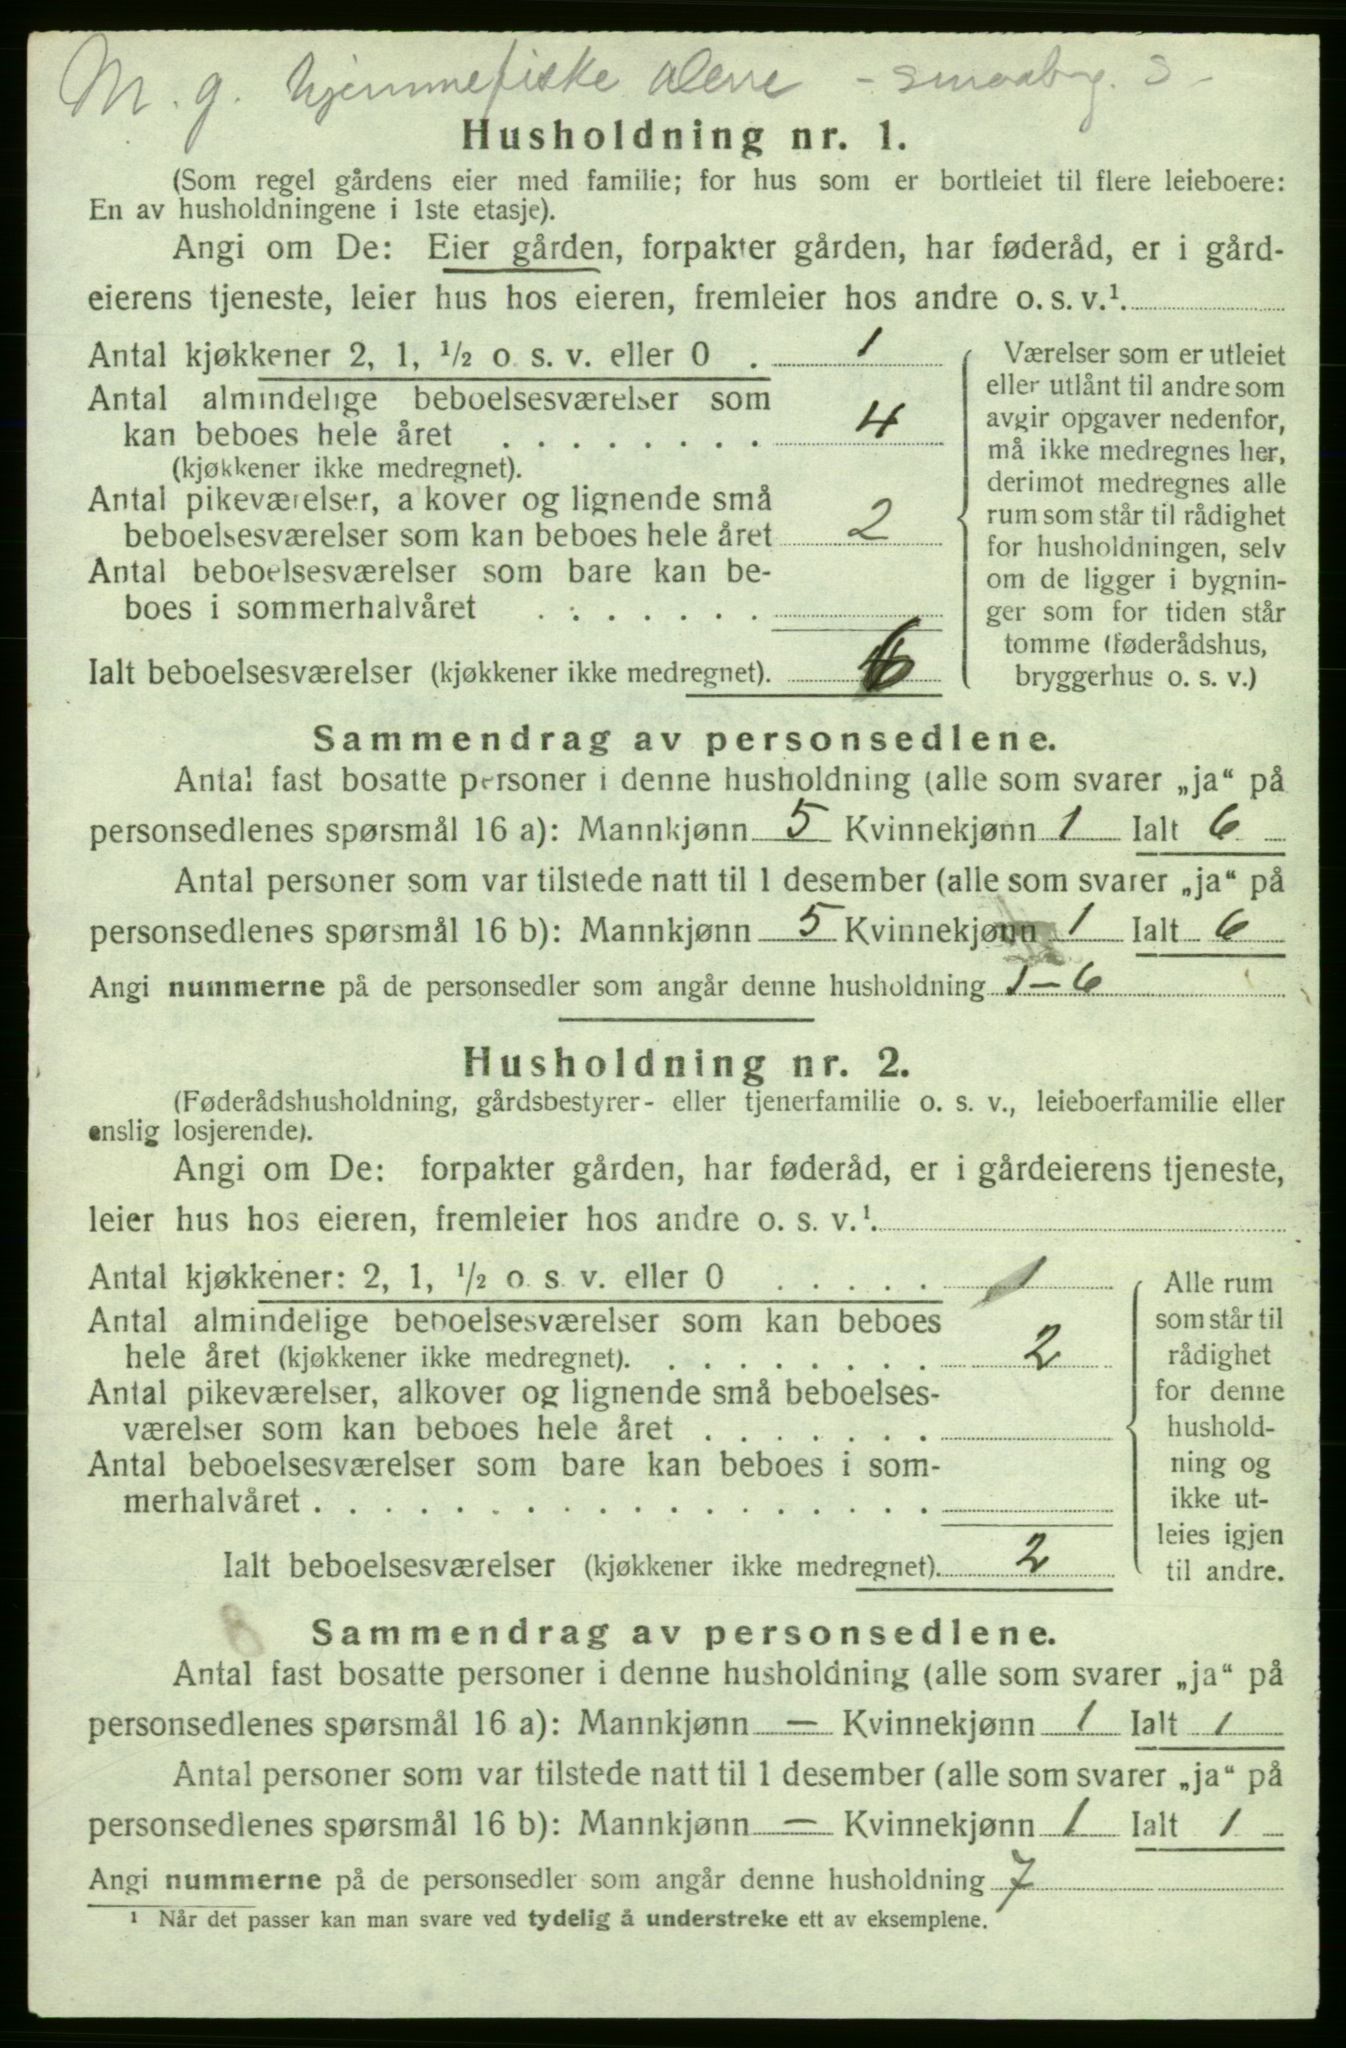 M. g. hjemmefiske alene - smaabrg. S -
Husholdning nr. 1.
(Som regel gårdens eier med familie; for hus som er bortleiet til flere leieboere:
En av husholdningene i 1ste etasje).
Angi om De: Eier gården, forpakter gården, har føderåd, er i gård-
eierens tjeneste, leier hus hos eieren, fremleier hos andre o. s. v.¹.
Antal kjøkkener 2, 1, ½ o s. v. eller 0 . 1
Antal almindelige beboelsesværelser som
kan beboes hele året . . . . . . . . 4
(kjøkkener ikke medregnet).
Antal pikeværelser, a kover og lignende små
beboelsesværelser som kan beboes hele året 2
Antal beboelsesværelser som bare kan be-
boes i sommerhalvåret . . . . . . .
Ialt beboelsesværelser (kjøkkener ikke medregnet). 6
Værelser som er utleiet
eller utlånt til andre som
avgir opgaver nedenfor,
må ikke medregnes her,
derimot medregnes alle
rum som står til rådighet
for husholdningen, selv
om de ligger i bygnin-
ger som for tiden står
tomme (føderådshus,
bryggerhus o. s. v.)
Sammendrag av personsedlene.
Antal fast bosatte personer i denne husholdning (alle som svarer „ja“ på
personsedlenes spørsmål 16 a): Mannkjønn 5 Kvinnekjønn 1 Ialt 6
Antal personer som var tilstede natt til 1 desember (alle som svarer „ja“ på
personsedlenes spørsmål 16 b): Mannkjønn 5 Kvinnekjønn 1 Ialt 6
Angi nummerne på de personsedler som angår denne husholdning 1-6
Husholdning nr. 2.
(Føderådshusholdning, gårdsbestyrer- eller tjenerfamilie o. s. v., leieboerfamilie eller
enslig losjerende).
Angi om De: forpakter gården, har føderåd, er i gårdeierens tjeneste,
leier hus hos eieren, fremleier hos andre o. s. v.¹.
Antal kjøkkener: 2, 1, ½ o s v. eller 0 . . . . . 1
Antal almindelige beboelsesværelser som kan beboes
hele året (kjøkkener ikke medregnet). . . . . . . . . 2
Antal pikeværelser, alkover og lignende små beboelses-
værelser som kan beboes hele året . . . . . . .
Antal beboelsesværelser som bare kan beboes i som-
merhalvåret . . . . . . . . . . . . . . . . . .
Ialt beboelsesværelser (kjøkkener ikke medregnet). 2
Alle rum
som står til
rådighet
for denne
hushold-
ning og
ikke ut-
leies igjen
til andre.
8
Sammendrag av personsedlene.
Antal fast bosatte personer i denne husholdning (alle som svarer „ja“ på
personsedlenes spørsmål 16 a): Mannkjønn — Kvinnekjønn 1 Ialt 1
Antal personer som var tilstede natt til 1 desember (alle som svarer „ja“ på
personsedlenes spørsmål 16 b): Mannkjønn — Kvinnekjønn 1 Ialt 1
Angi nummerne på de personsedler som angår denne husholdning 7
¹ Når det passer kan man svare ved tydelig å understreke ett av eksemplene.